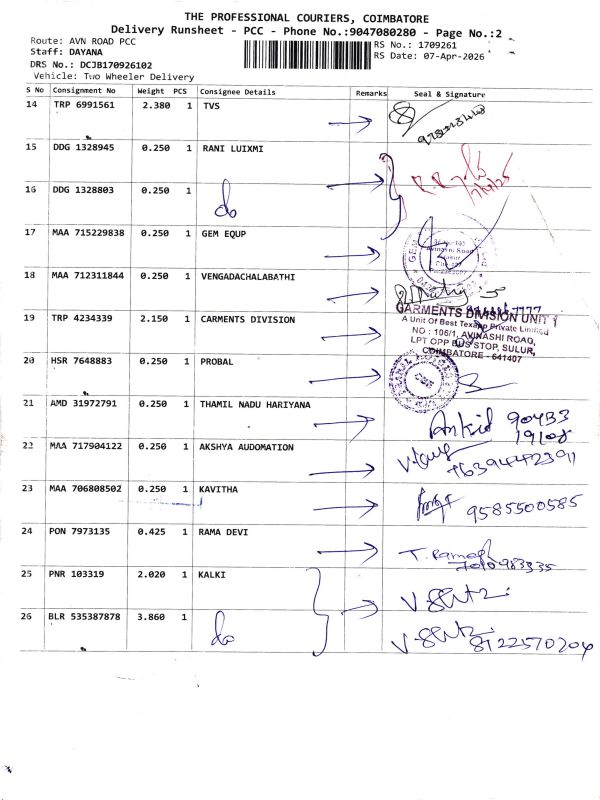 THE PROFESSIONAL COURIERS, COIMBATORE
Delivery Runsheet - PCC - Phone No.:9047080280 - Page No.:2
Route: AVN ROAD PCC
Staff: DAYANA
DRS No.: DCJB170926102
Vehicle: Two Wheeler Delivery
RS No.: 1709261
RS Date: 07-Apr-2026
S No Consignment No Weight PCS Consignee Details Remarks Seal & Signature
14 TRP 6991561 2.380 1 TVS
15 DDG 1328945 0.250 1 RANI LUIXMI
16 DDG 1328803 0.250 1 do
17 MAA 715229838 0.250 1 GEM EQUP
18 MAA 712311844 0.250 1 VENGADACHALABATHI
19 TRP 4234339 2.150 1 CARMENTS DIVISION
GARMENTS DIVISION UNIT 1
A Unit Of Best Private Limited
NO : 106/1, AVINASHI ROAD,
LPT OPP BUS STOP, SULUR,
COIMBATORE - 641407
20 HSR 7648883 0.250 1 PROBAL
21 AMD 31972791 0.250 1 THAMIL NADU HARIYANA Ankid 90433
19108
22 MAA 717904122 0.250 1 AKSHYA AUDOMATION 7639442391
23 MAA 706808502 0.250 1 KAVITHA 9585500585
24 PON 7973135 0.425 1 RAMA DEVI
25 PNR 103319 2.020 1 KALKI
26 BLR 535387878 3.860 1 do 8122570204